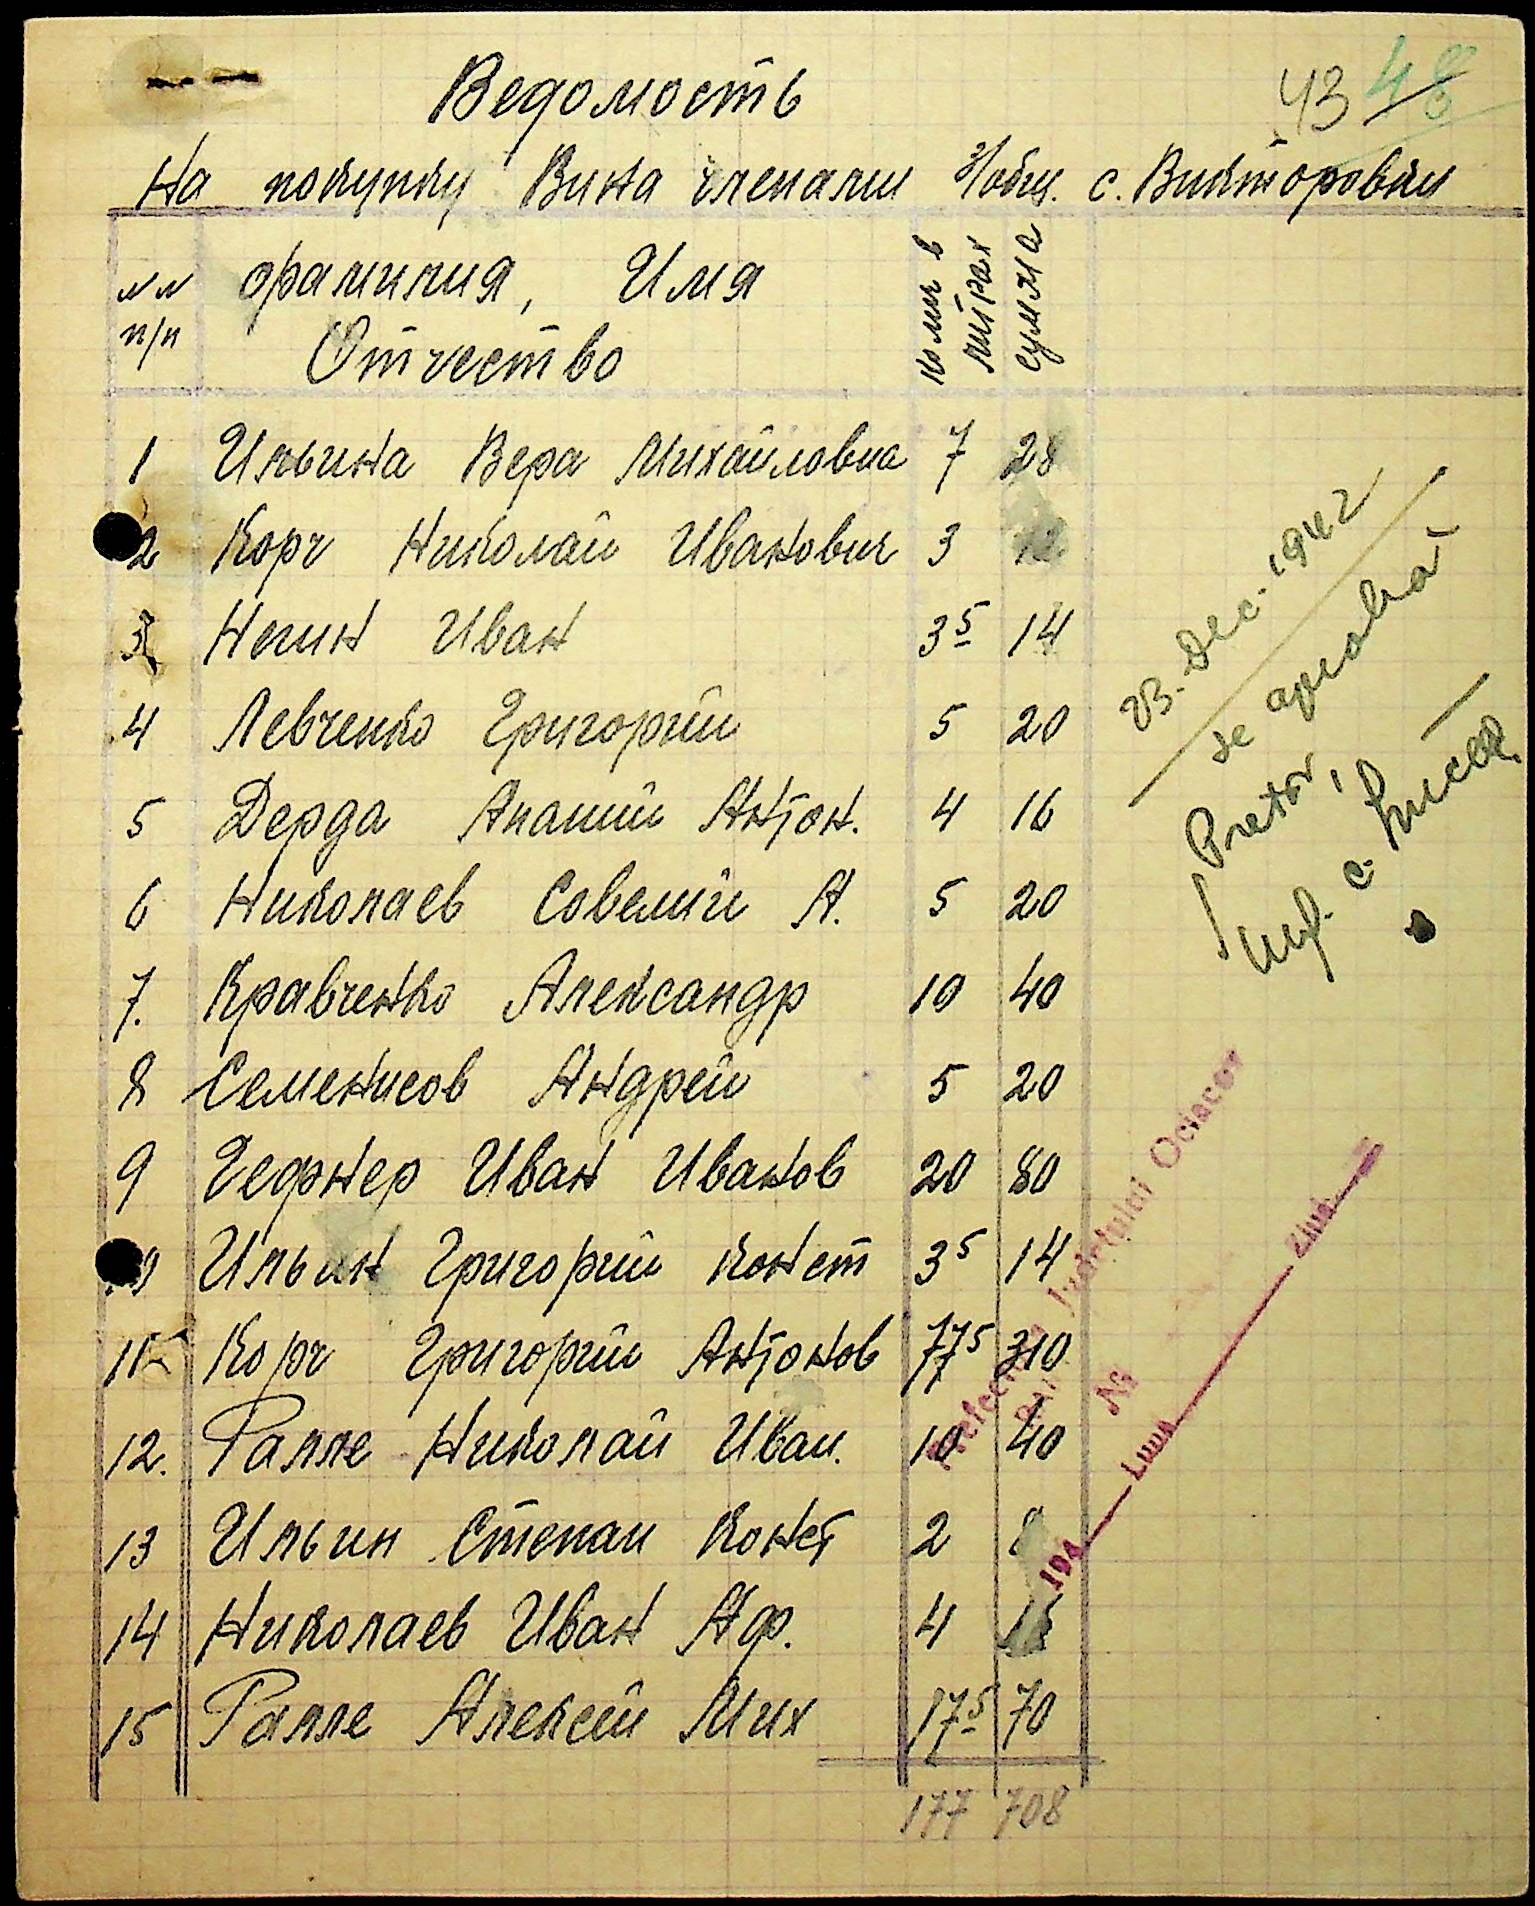 43 48
Ведомость
На покупку Вина членами Iобщ. с. Викторовки
№№ п/п
фамилия, Имя Отчество
колич в литрах
сумма
1 Ильина Вера Михайловна 7 28
2 Корч Николай Иванович 3 12
3 Негин Иван 3⁵ 14
4 Левченко Григорий 5 20
5 Дерда Ананий Антон. 4 16
6 Николаев Совелий А. 5 20
7. Кравченко Александр 10 40
8 Семенисов Андрей 5 20
9 Гефнер Иван Иванов 20 80
10 Ильин Григорий Конст 3⁵ 14
11 Корч Григорий Антонов 77⁵ 310
12. Ралле Николай Иван. 10 40
13 Ильин Степан Конст 2 8
14 Николаев Иван Аф. 4 16
15 Ралле Алексей Мих 17⁵ 70
177 708
23. Dec. 1942
se aprobă
Pretor,
Prefectura Judetului Oceacov
№
194 Luna Ziua